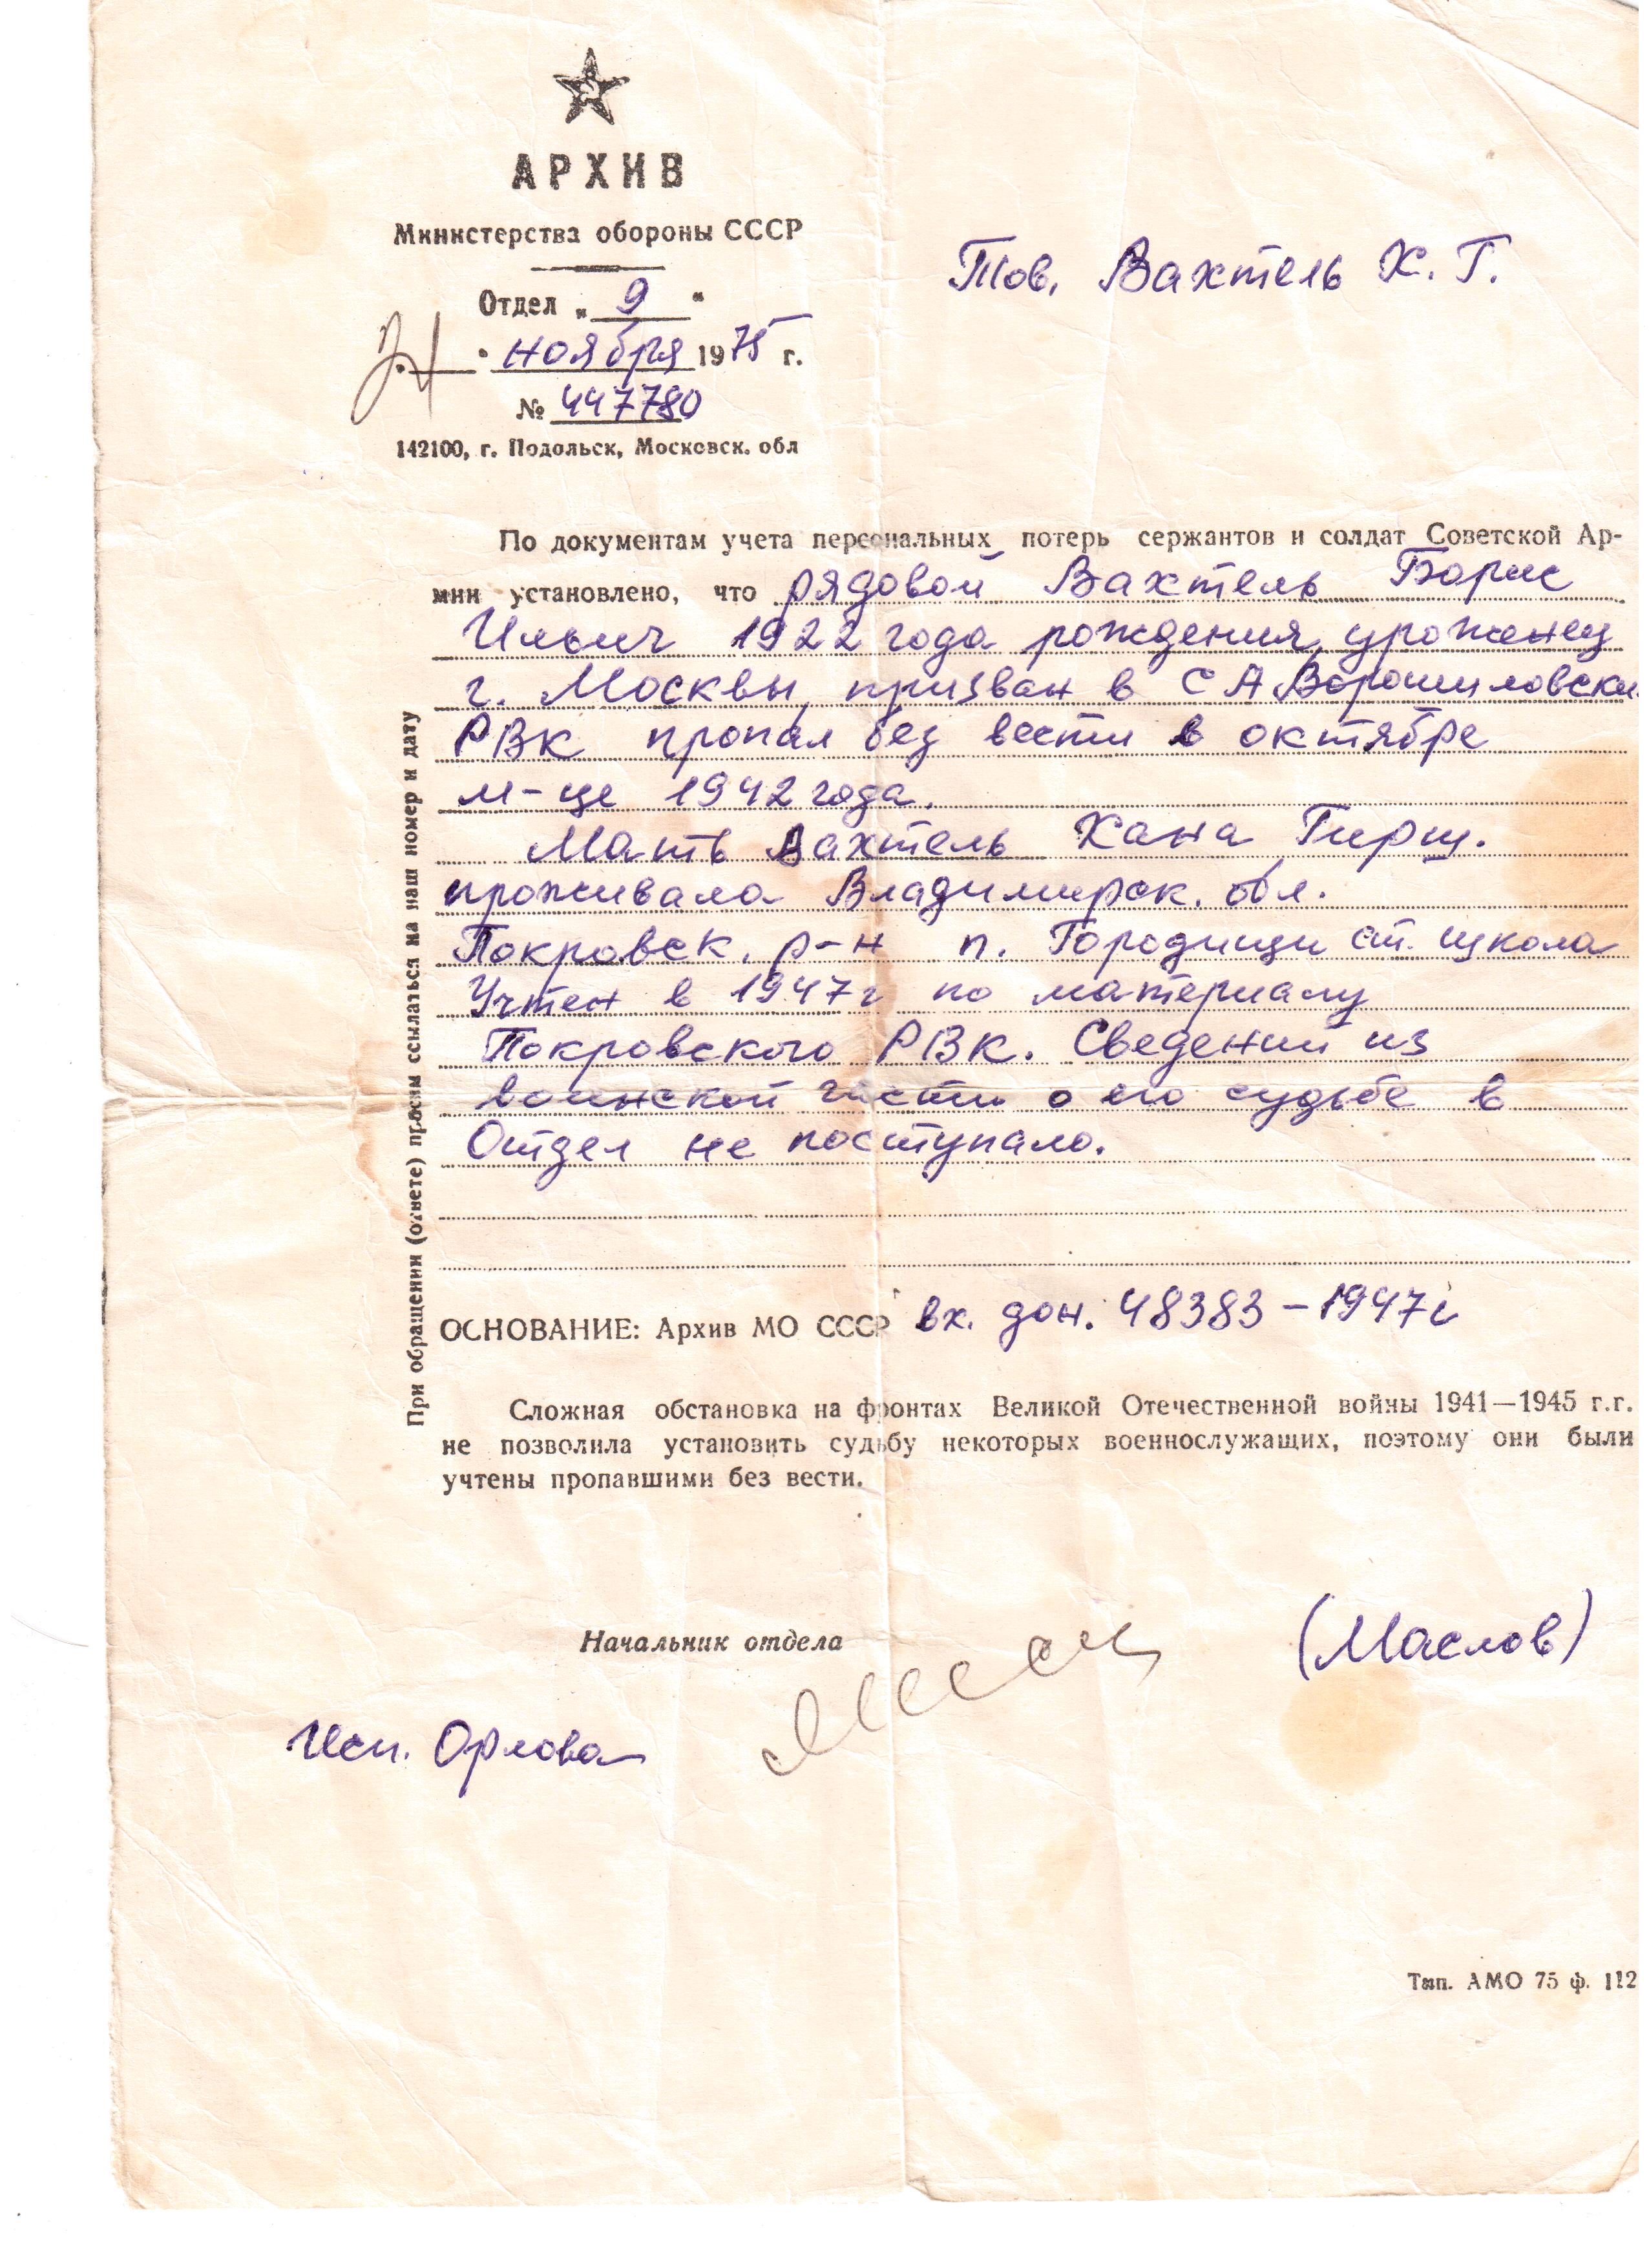 АРХИВ
Министерства обороны СССР
Отдел „ 9 "
" ноября 1975 г.
№ 447780
142100, г. Подольск, Московск. обл
Тов. Вахтель Х. Г.
По документам учета персональных потерь сержантов и солдат Советской Ар-
мии установлено, что рядовой Вахтель Борис
Ильич 1922 года рождения, уроженец
г. Москвы, призван в СА Ворошиловски
РВК пропал без вести в октябре
м-це 1942 года.
Мать Вахтель Хана Гирш.
проживала Владимирск. обл.
Покровск. р-н п. Городищи ст. школа
Учтен в 1947г по материалу
Покровского РВК. Сведений из
воинской части о его судьбе в
Отдел не поступало.
ОСНОВАНИЕ: Архив МО СССР вх. дон. 48383-1947г
Сложная обстановка на фронтах Великой Отечественной войны 1941—1945 г.г.
не позволила установить судьбу некоторых военнослужащих, поэтому они были
учтены пропавшими без вести.
Начальник отдела (Маслов)
Исп. Орлова
Тип. АМО 75 ф. 112
При обращении (ответе) просим ссылаться на наш номер и дату